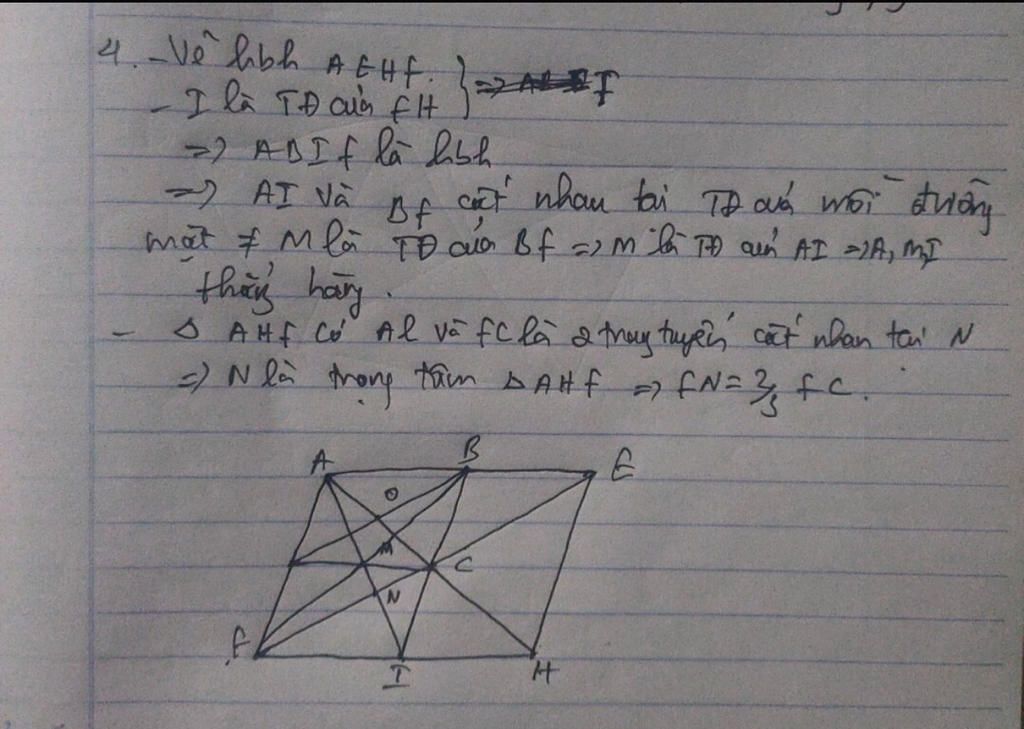 4. - Vẽ hbh AEHF. } =>
- I là TĐ của FH
=> ABIF là hbh
=> AI và BF cắt nhau tại TĐ của mỗi đường
mặt ≠ M là TĐ của BF => M là TĐ của AI => A, M, I
thẳng hàng.
- Δ AHF có AI và FC là 2 trung tuyến cắt nhau tại N
=> N là trọng tâm Δ AHF => FN = 2/3 FC.
A B E
O
M C
N
F
I H